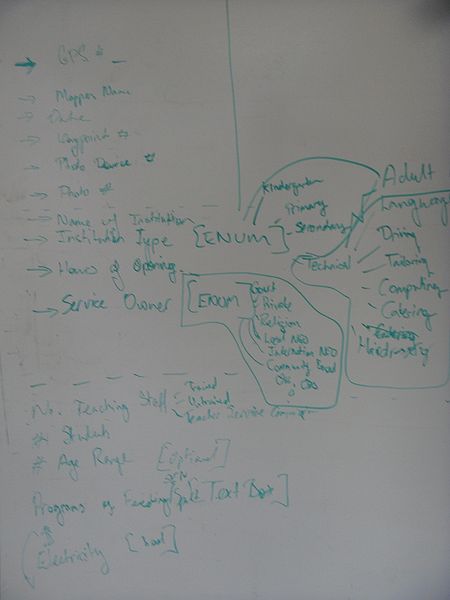 → GPS # _
→ Mapper Name
→ Date
→ Waypoint #
→ Photo Device #
→ Photo #
→ Name of Institution
→ Institution Type [ENUM]
Kindergarten
Primary
Secondary
Technical
Adult
Language
Driving
Tailoring
Computing
Catering
Hairdressing
→ Hours of Opening
→ Service Owner [ENUM]
Govt
Private
Religion
Local NGO
Internation NGO
Community Based
Org, CBO
No. Teaching Staff
Trained
Untrained
Teacher Service Commission
# Students
# Age Range [optional]
Programs of Feeding [Text Box]
Electricity [bool]